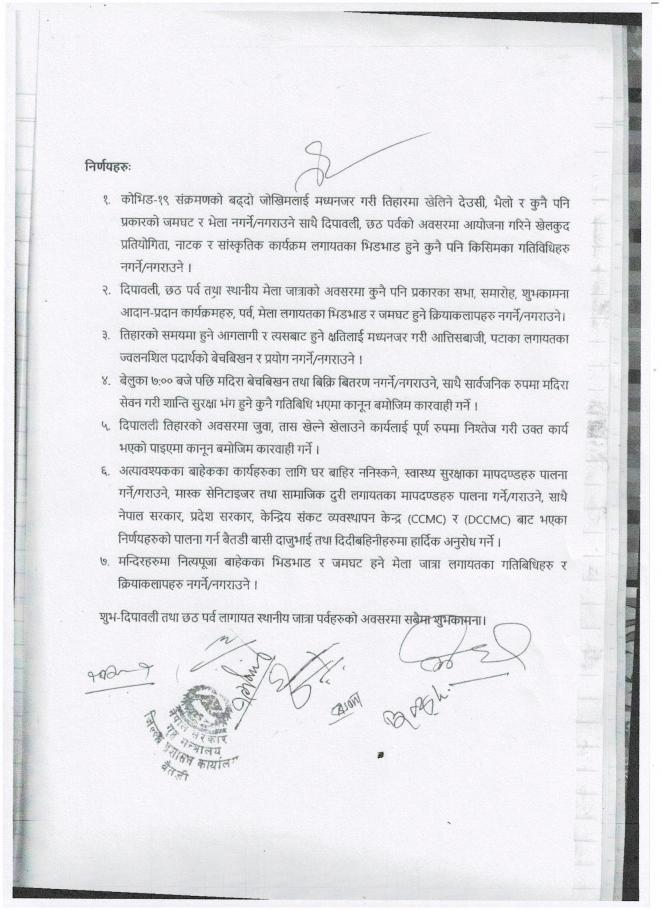 निर्णयहरुः
१. कोभिड-१९ संक्रमणको बढ्दो जोखिमलाई मध्यनजर गरी तिहारमा खेलिने देउसी, भैलो र कुनै पनि
प्रकारको जमघट र भेला नगर्ने/नगराउने साथै दिपावली, छठ पर्वको अवसरमा आयोजना गरिने खेलकुद
प्रतियोगिता, नाटक र सांस्कृतिक कार्यक्रम लगायतका भिडभाड हुने कुनै पनि किसिमका गतिविधिहरु
नगर्ने/नगराउने ।
२. दिपावली, छठ पर्व तथा स्थानीय मेला जात्राको अवसरमा कुनै पनि प्रकारका सभा, समारोह, शुभकामना
आदान-प्रदान कार्यक्रमहरु, पर्व, मेला लगायतका भिडभाड र जमघट हुने क्रियाकलापहरु नगर्ने/नगराउने।
३. तिहारको समयमा हुने आगलागी र त्यसबाट हुने क्षतिलाई मध्यनजर गरी आत्तिसबाजी, पटाका लगायतका
ज्वलनशिल पदार्थको बेचबिखन र प्रयोग नगर्ने/नगराउने ।
४. बेलुका ७:०० बजे पछि मदिरा बेचबिखन तथा बिक्रि बितरण नगर्ने/नगराउने, साथै सार्वजनिक रुपमा मदिरा
सेवन गरी शान्ति सुरक्षा भंग हुने कुनै गतिबिधि भएमा कानून बमोजिम कारवाही गर्ने ।
५. दिपालली तिहारको अवसरमा जुवा, तास खेल्ने खेलाउने कार्यलाई पूर्ण रुपमा निश्तेज गरी उक्त कार्य
भएको पाइएमा कानून बमोजिम कारवाही गर्ने ।
६. अत्यावश्यकका बाहेकका कार्यहरुका लागि घर बाहिर ननिस्कने, स्वास्थ्य सुरक्षाका मापदण्डहरु पालना
गर्ने/गराउने, मास्क सेनिटाइजर तथा सामाजिक दुरी लगायतका मापदण्डहरु पालना गर्ने/गराउने, साथै
नेपाल सरकार, प्रदेश सरकार, केन्द्रिय संकट व्यवस्थापन केन्द्र (CCMC) र (DCCMC) बाट भएका
निर्णयहरुको पालना गर्न बैतडी बासी दाजुभाई तथा दिदीबहिनीहरुमा हार्दिक अनुरोध गर्ने ।
७. मन्दिरहरुमा नित्यपूजा बाहेकका भिडभाड र जमघट हुने मेला जात्रा लगायतका गतिबिधिहरु र
क्रियाकलापहरु नगर्ने/नगराउने ।
शुभ-दिपावली तथा छठ पर्व लागायत स्थानीय जात्रा पर्वहरुको अवसरमा सबैमा शुभकामना।
नेपाल सरकार
गृह मन्त्रालय
जिल्ला प्रशासन कार्यालय
बैतडी